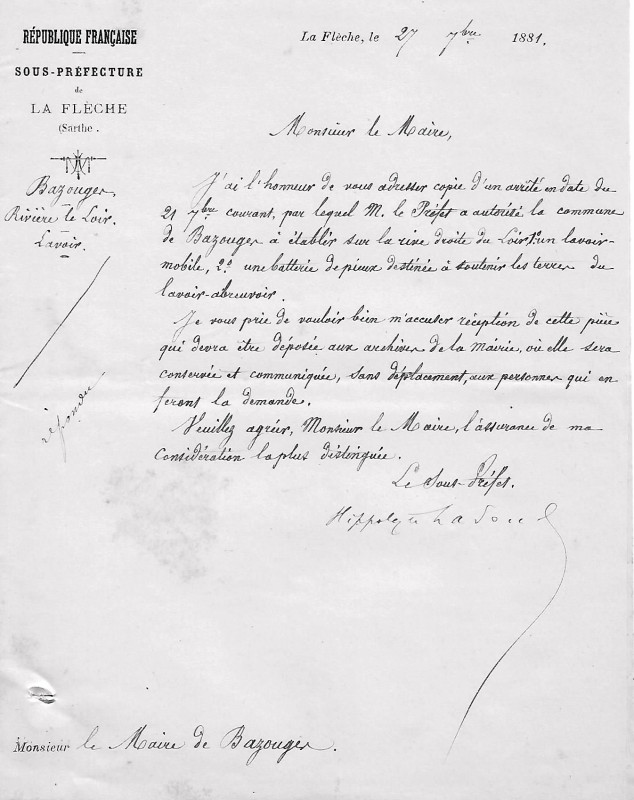 RÉPUBLIQUE FRANÇAISE
SOUS-PRÉFECTURE
de
LA FLÈCHE
(Sarthe.
La Flèche, le 27 7bre 1881.
Bazouges,
Rivière le Loir.
Lavoir.
répondu
Monsieur le Maire,
J'ai l'honneur de vous adresser copie d'un arrêté en date du
21 7bre courant, par lequel M. le Préfet a autorisé la commune
de Bazouges à établir sur la rive droite du Loir, 1º un lavoir-
mobile, 2º une batterie de pieux destinée à soutenir les terres du
lavoir-abreuvoir.
Je vous prie de vouloir bien m'accuser réception de cette pièce
qui devra être déposée aux archives de la Mairie, où elle sera
conservée et communiquée, sans déplacement, aux personnes qui en
feront la demande.
Veuillez agréer, Monsieur le Maire, l'assurance de ma
considération la plus distinguée.
Le Sous-Préfet.
Hippolyte
Monsieur le Maire de Bazouges.